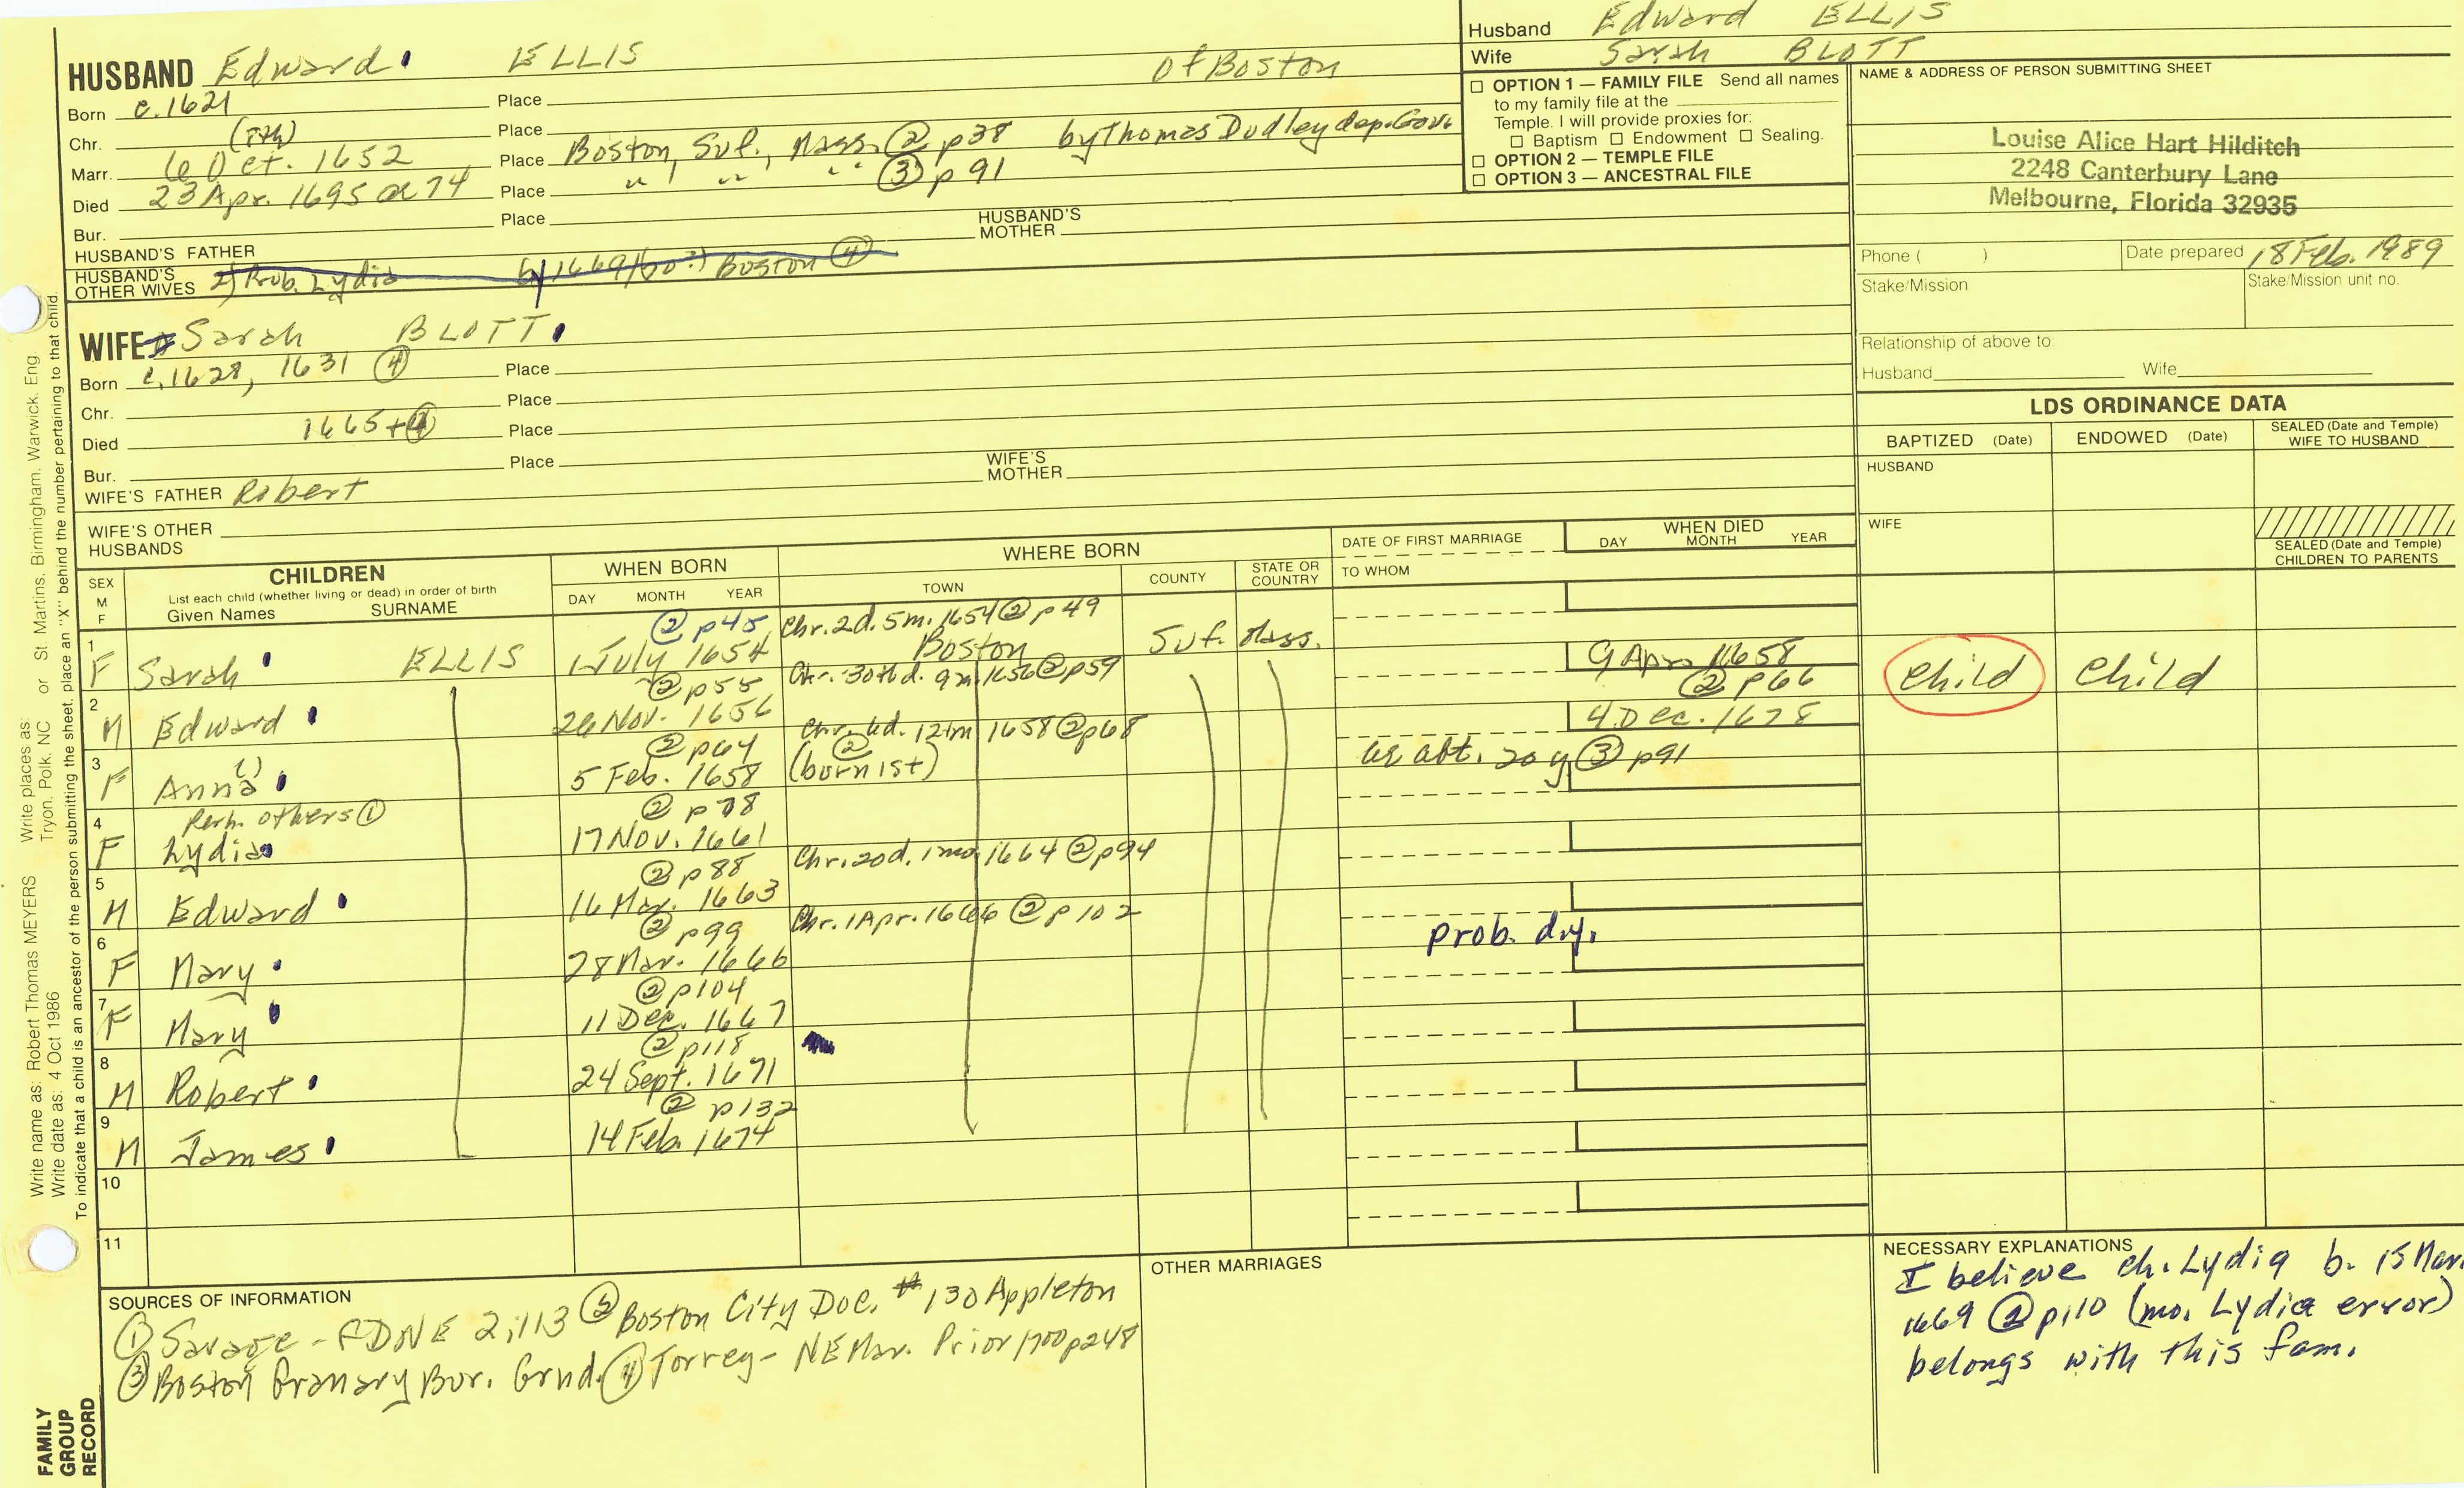 Husband Edward ELLIS
Wife Sarah BLOTT
HUSBAND Edward ELLIS Of Boston
Born c.1621 Place
Chr. (7th) Place
Marr. 6 Oct. 1652 Place Boston, Suf., Mass. ② p38 by Thomas Dudley dep. Gov.
Died 23 Apr. 1695 or 74 Place " " " ③ p91
Bur. Place
HUSBAND'S FATHER
HUSBAND'S MOTHER
HUSBAND'S OTHER WIVES 2) Prob. Lydia b/1669/(60?) Boston ④
☐ OPTION 1 — FAMILY FILE Send all names
to my family file at the
Temple. I will provide proxies for:
☐ Baptism ☐ Endowment ☐ Sealing.
☐ OPTION 2 — TEMPLE FILE
☐ OPTION 3 — ANCESTRAL FILE
NAME & ADDRESS OF PERSON SUBMITTING SHEET
Louise Alice Hart Hilditch
2248 Canterbury Lane
Melbourne, Florida 32935
Phone ( ) Date prepared 18 Feb. 1989
Stake/Mission Stake/Mission unit no.
Relationship of above to:
Husband Wife
WIFE Sarah BLOTT
Born c.1628, 1631 ④ Place
Chr. Place
Died 1665+④ Place
Bur. Place
WIFE'S FATHER Robert
WIFE'S MOTHER
WIFE'S OTHER HUSBANDS
LDS ORDINANCE DATA
BAPTIZED (Date) ENDOWED (Date) SEALED (Date and Temple) WIFE TO HUSBAND
HUSBAND
WIFE
SEALED (Date and Temple) CHILDREN TO PARENTS
SEX M F
CHILDREN
List each child (whether living or dead) in order of birth
Given Names SURNAME
WHEN BORN
DAY MONTH YEAR
WHERE BORN
TOWN COUNTY STATE OR COUNTRY
DATE OF FIRST MARRIAGE
TO WHOM
WHEN DIED
DAY MONTH YEAR
② p45 Chr. 2d. 5m. 1654 ② p49
1 F Sarah ELLIS 1 July 1654 Boston Suf. Mass. 9 Apr. 1658 Child Child
② p55 Chr. 30th d. 9m. 1656 ② p59 ② p66
2 M Edward 26 Nov. 1656 4 Dec. 1678
② p64 Chr. 6d. 12m 1658 ② p68
3 F Anna (1) 5 Feb. 1658 ② (born 1st) as abt. 20 y ③ p91
Perh. others ① ② p78
4 F Lydia 17 Nov. 1661
② p88 Chr. 20d. 1mo. 1664 ② p94
5 M Edward 16 Mar. 1663
② p99 Chr. 1 Apr. 1666 ② p102
6 F Mary 28 Mar. 1666 prob. d.y.
② p104
7 F Mary 11 Dec. 1667
② p118
8 M Robert 24 Sept. 1671
② p132
9 M James 14 Feb. 1674
10
11
SOURCES OF INFORMATION
① Savage - GDNE 2:113 ② Boston City Doc. #130 Appleton
③ Boston Granary Bur. Grnd. ④ Torrey - NE Mar. Prior 1700 p248
OTHER MARRIAGES
NECESSARY EXPLANATIONS
I believe ch. Lydia b. 15 Mar.
1669 ② p110 (mo. Lydia error)
belongs with this fam.
Write name as: Robert Thomas MEYERS Write places as: St. Martins. Birmingham. Warwick. Eng
Write date as: 4 Oct 1986 Tryon. Polk. NC or
To indicate that a child is an ancestor of the person submitting the sheet, place an "X" behind the number pertaining to that child.
FAMILY
GROUP
RECORD